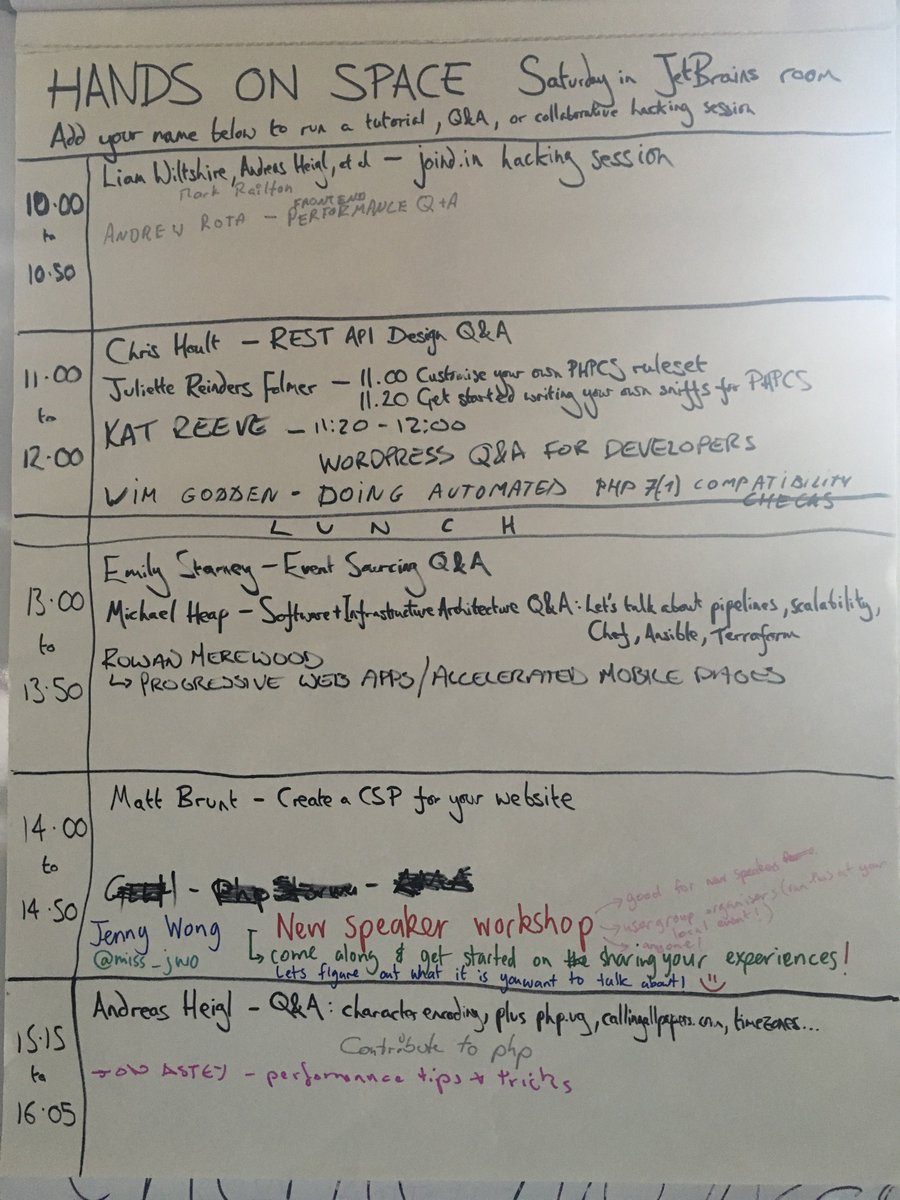 HANDS ON SPACE Saturday in JetBrains room
Add your name below to run a tutorial, Q&A, or collaborative hacking session
10.00
to
10.50
Liam Wiltshire, Andreas Heigl, et al – joind.in hacking session
Mark Railton
FRONTEND
ANDREW ROTA – PERFORMANCE Q+A
11.00
to
12.00
Chris Hoult – REST API Design Q&A
Juliette Reinders Folmer – 11.00 Customise your own PHPCS ruleset
11.20 Get started writing your own sniffs for PHPCS
KAT REEVE – 11:20 - 12:00
WORDPRESS Q&A FOR DEVELOPERS
WIM GODDEN - DOING AUTOMATED PHP 7(1) COMPATIBILITY
CHECKS
LUNCH
13.00
to
13.50
Emily Stamey – Event Sourcing Q&A
Michael Heap – Software + Infrastructure Architecture Q&A: Let's talk about pipelines, scalability,
Chef, Ansible, Terraform
ROWAN MEREWOOD
↳ PROGRESSIVE WEB APPS/ACCELERATED MOBILE PAGES
14.00
to
14.50
Matt Brunt – Create a CSP for your website
→ good for new speakers
→ usergroup organisers (run this at your
local event!)
→ anyone!
Jenny Wong
@miss_jwo
New speaker workshop
↳ come along & get started on sharing your experiences!
Lets figure out what it is you want to talk about!
15.15
to
16.05
Andreas Heigl – Q&A: character encoding, plus php.ug, callingallpapers.com, timezones...
Contribute to php
– performance tips & tricks